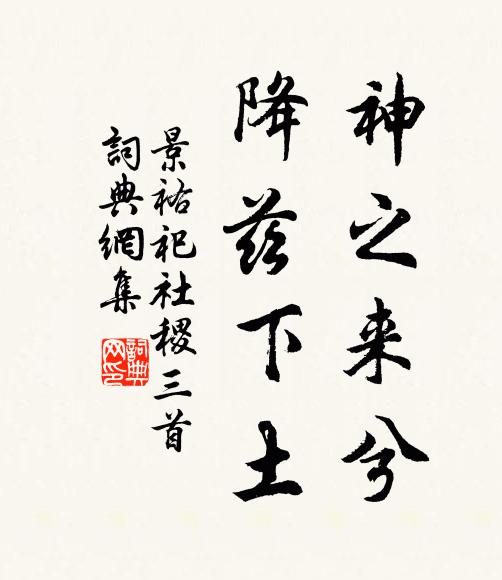 神之来兮
降茲下土
景祐祀社稷三首
詞典網集
詞典網印